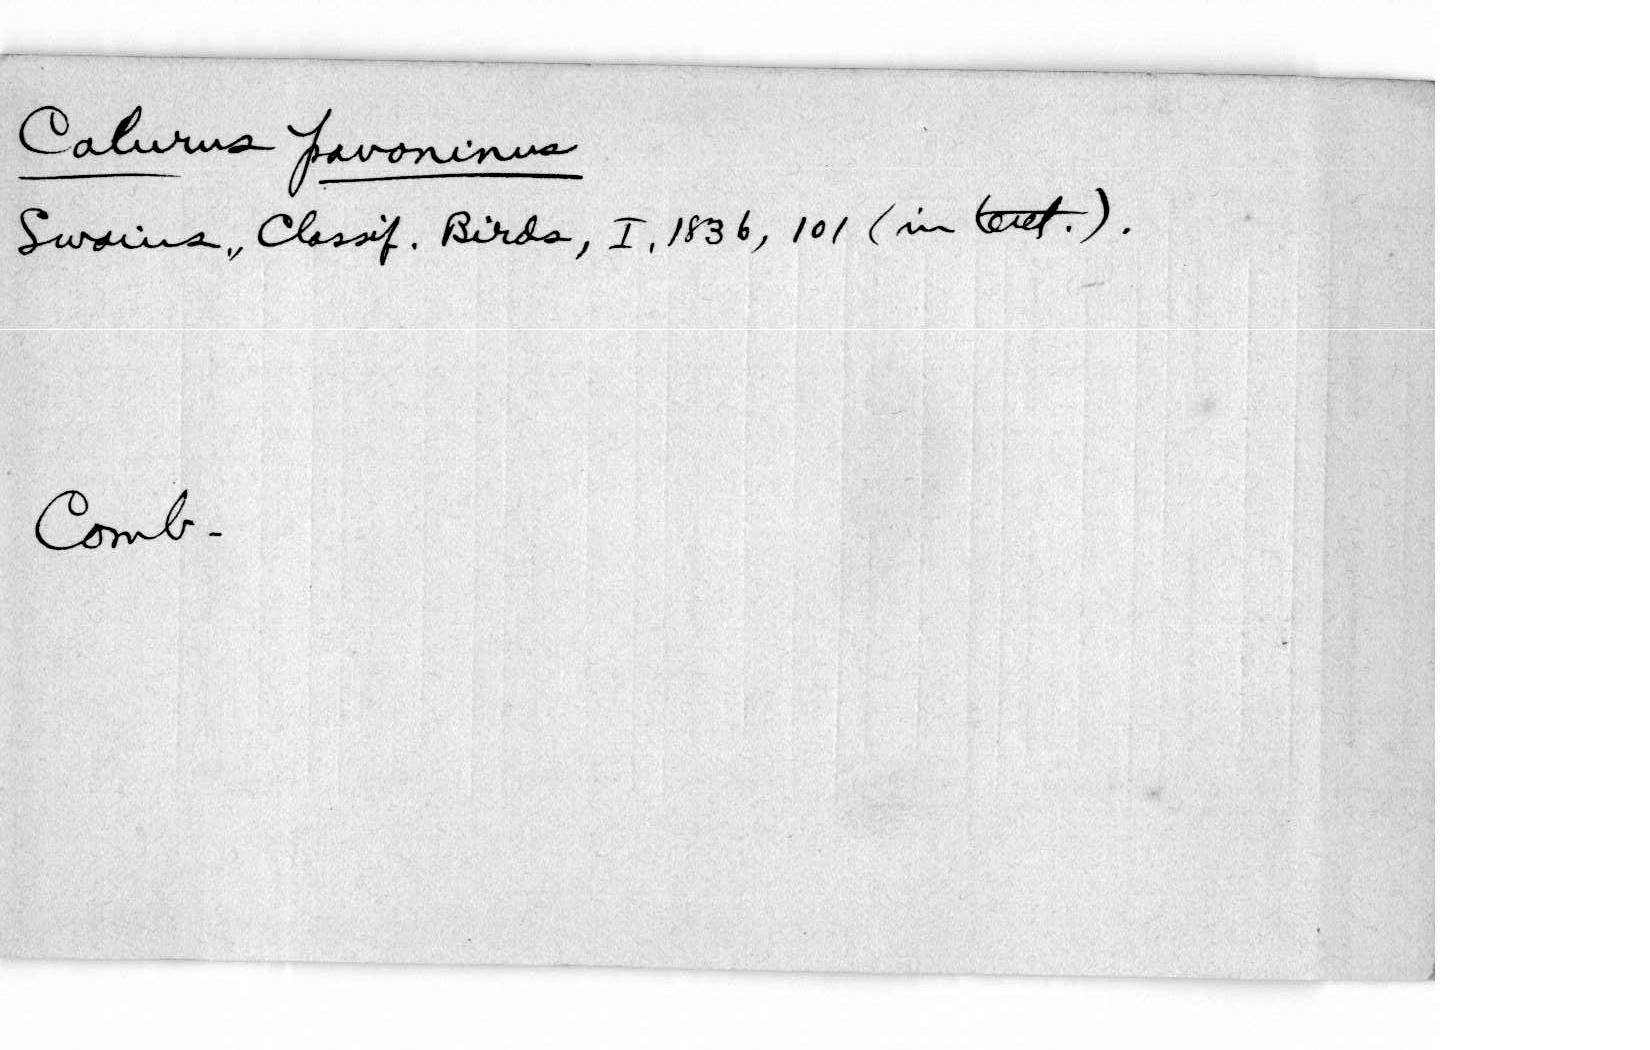 Calurus pavoninus
Swains., Classif. Birds, I, 1836, 101 (in text.).
Comb.